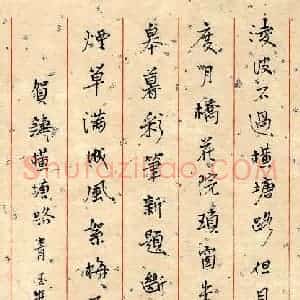 淩波不過橫塘路但目
度月橋花院瑣窗
皋暮彩筆新題斷
煙草滿城風絮梅子
賀鑄橫塘路青玉